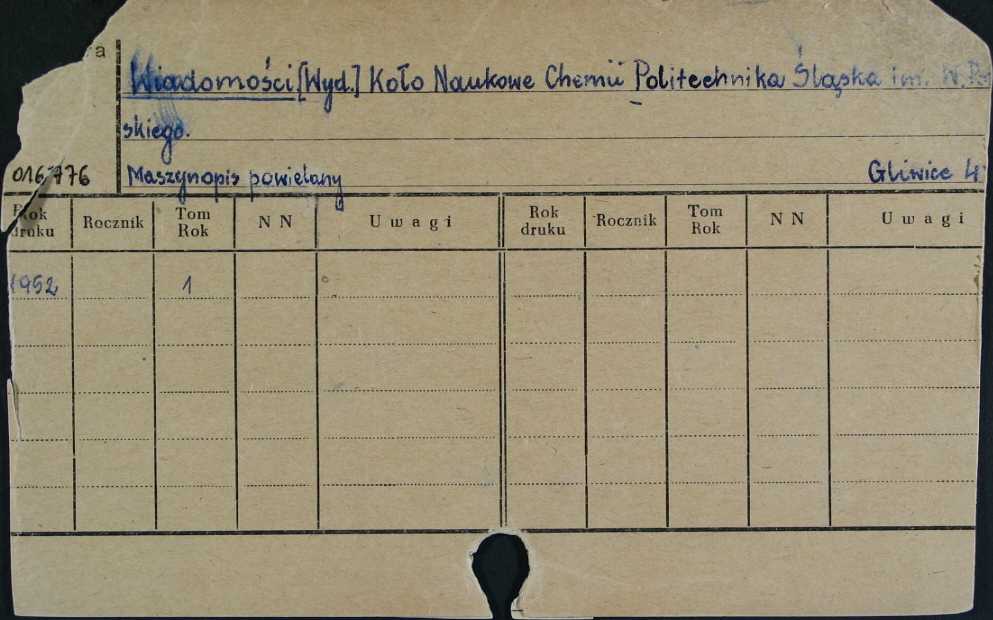 a
Wiadomości [Wyd.] Koło Naukowe Chemii Politechnika Śląska im. W.
skiego.
016776 Maszynopis powielany Gliwice 4
Rok druku Rocznik Tom Rok N N Uwagi Rok druku Rocznik Tom Rok N N Uwagi
1952 1